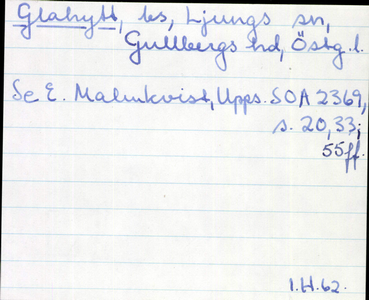 Glahytt, bs, Ljungs sn,
Gullbergs hd, Östg. l.
Se E. Malmkvist, Upps. SOA 2369,
s. 20, 33;
55ff.
I.H.62.